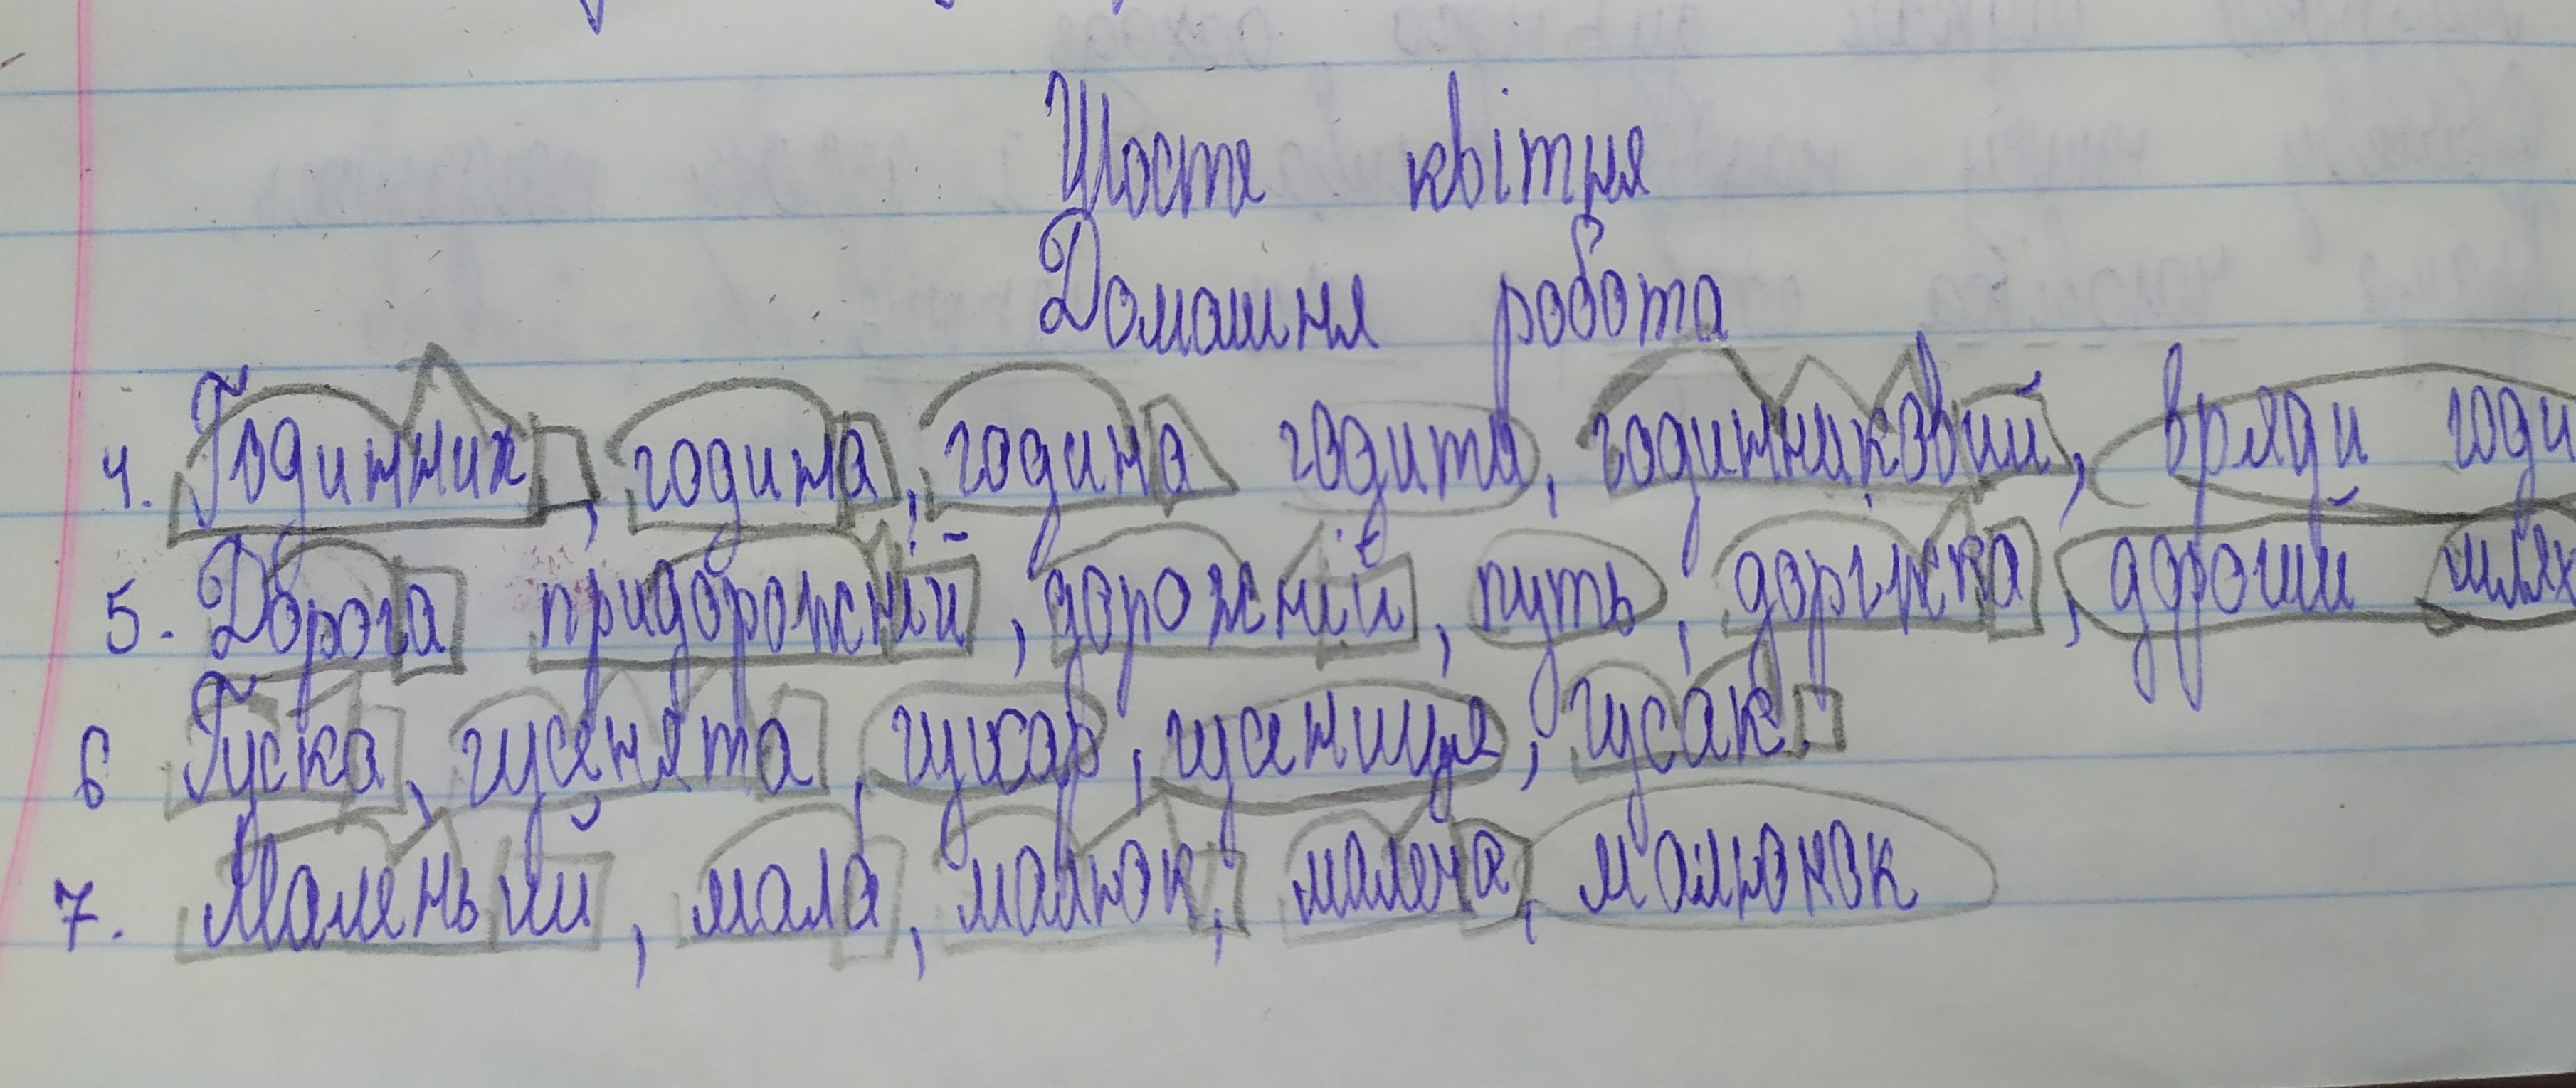 Шосте квітня
Домашня робота
4. Годинник, година, година годити, годинниковий, вряди годи
5. Дорога придорожній, дорожній, путь, доріжка, дорогий шлях
6 Гуска, гусенята, гусар, гусениця, гусак.
7. Маленький, мала, малюк, малеча, малюнок